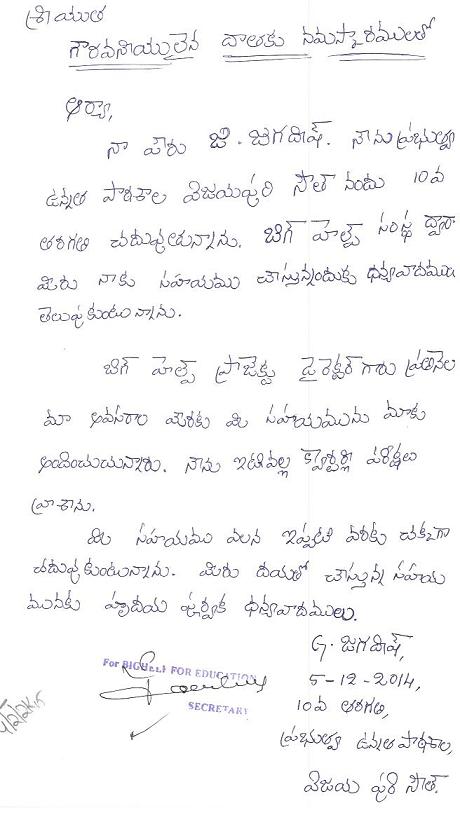 శ్రీయుత
గౌరవనీయులైన దాతకు నమస్కారములతో
ఆర్యా,
నా పేరు జి. జగదీష్. నేను ప్రభుత్వ
ఉన్నత పాఠశాల విజయపురి సౌత్ నందు 10వ
తరగతి చదువుతున్నాను. బిగ్ హెల్ప్ సంస్థ ద్వారా
మీరు నాకు సహయము చేస్తున్నందుకు ధన్యవాదములు
తెలుపుకుంటున్నాను.
బిగ్ హెల్ప్ ప్రాజెక్టు డైరెక్టర్ గారు ప్రతినెల
మా అవసరాల మేరకు మీ సహయమును మాకు
అందించుచున్నారు. నేను ఇటీవల్ల క్వార్టర్లీ పరీక్షలు
వ్రాశాను.
మీ సహయము వలన ఇప్పటి వరకు చక్కగా
చదువుకుంటున్నాను. మీరు దయతో చేస్తున్న సహయ
మునకు హృదయ పూర్వక ధన్యవాదములు.
G. జగదీష్,
5-12-2014,
10వ తరగతి,
ప్రభుత్వ ఉన్నత పాఠశాల,
విజయ పురి సౌత్.
For BIGHELP FOR EDUCATION
SECRETARY